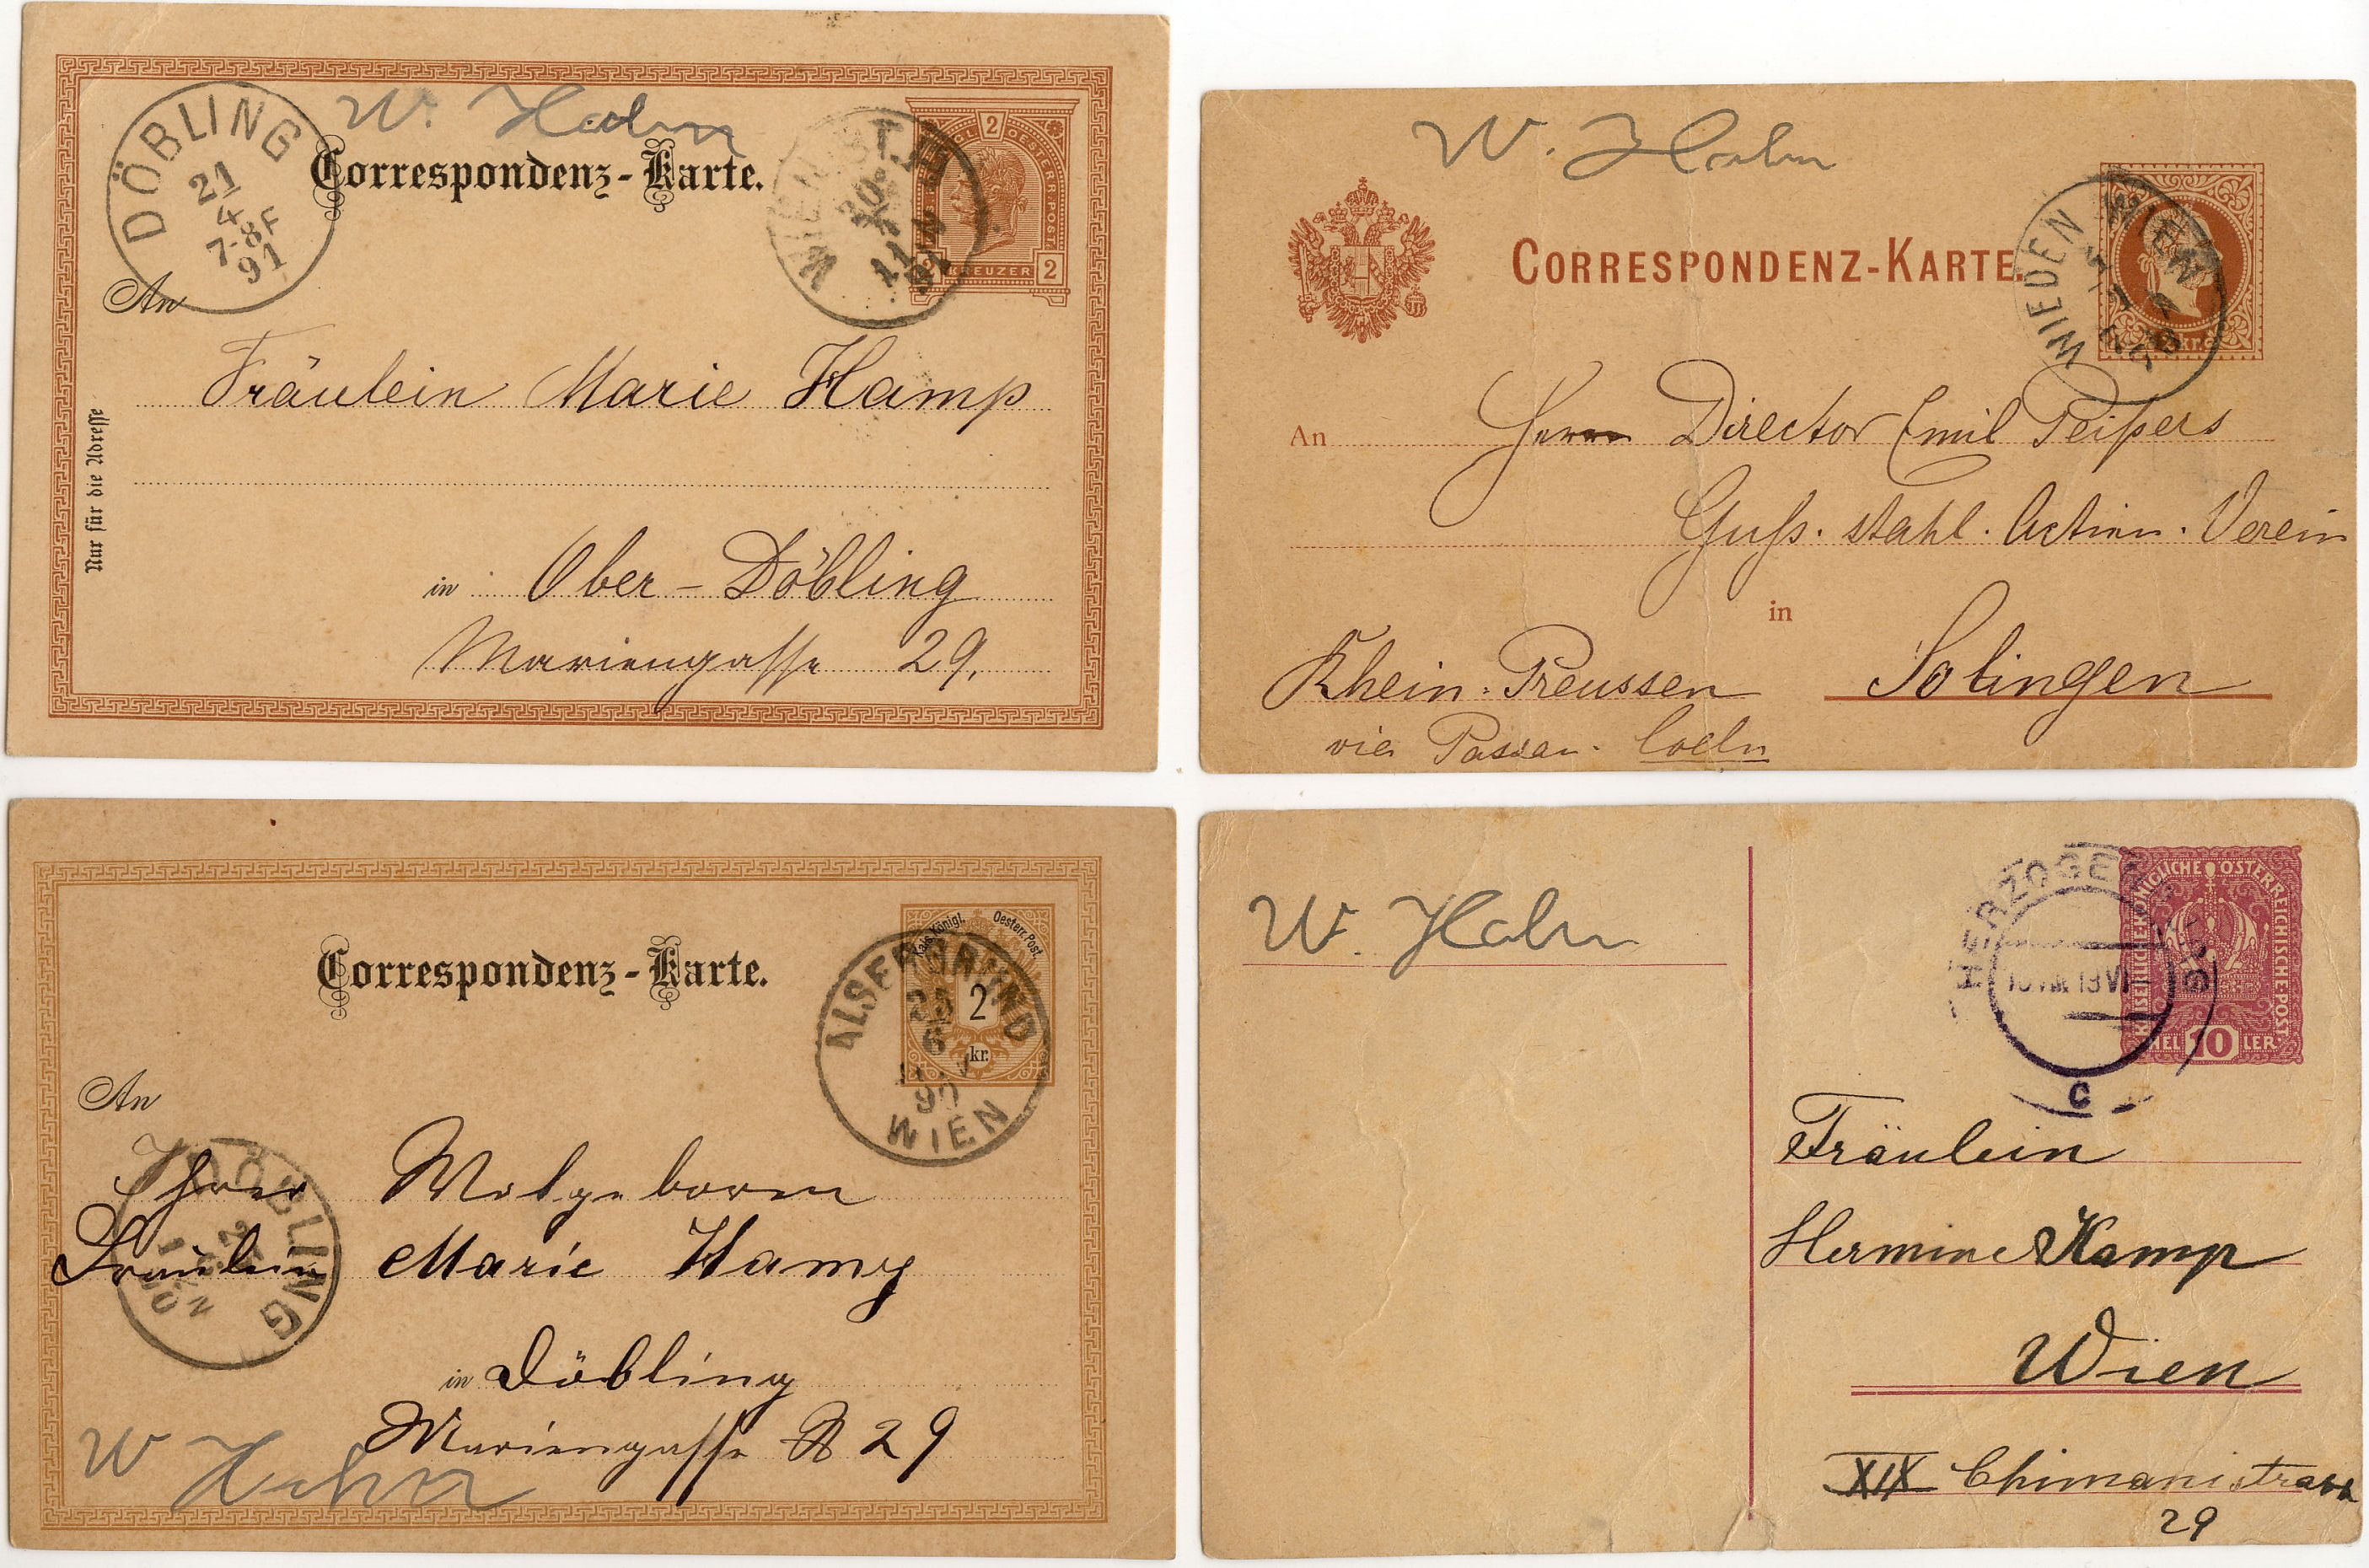 W. Hahn
DÖBLING
21
4
7-8F
91
Correspondenz-Karte.
WIEN
2
KREUZER
2
An
Fräulein Marie Hamp
Nur für die Adresse
in Ober-Döbling
Mariengasse 29.
W. Hahn
CORRESPONDENZ-KARTE.
WIEDEN WIEN
An Herrn Director Emil Peipers
Guß. stahl. Actien. Verein
in
Rhein. Preussen Solingen
via Passau. Coeln
Correspondenz-Karte.
Kais. Königl. Oesterr. Post
2
kr.
ALSERGRUND
6
90
WIEN
An
Ihrer Wolgeboren
DÖBLING
Fräulein Marie Hamp
in Döbling
Mariengasse № 29
W Hahn
W. Hahn
KAISERLICHE KÖNIGLICHE ÖSTERREICHISCHE POST
HELLER
10
C
Fräulein
Hermine Hamp
Wien
XIX Chimanistrasse
29